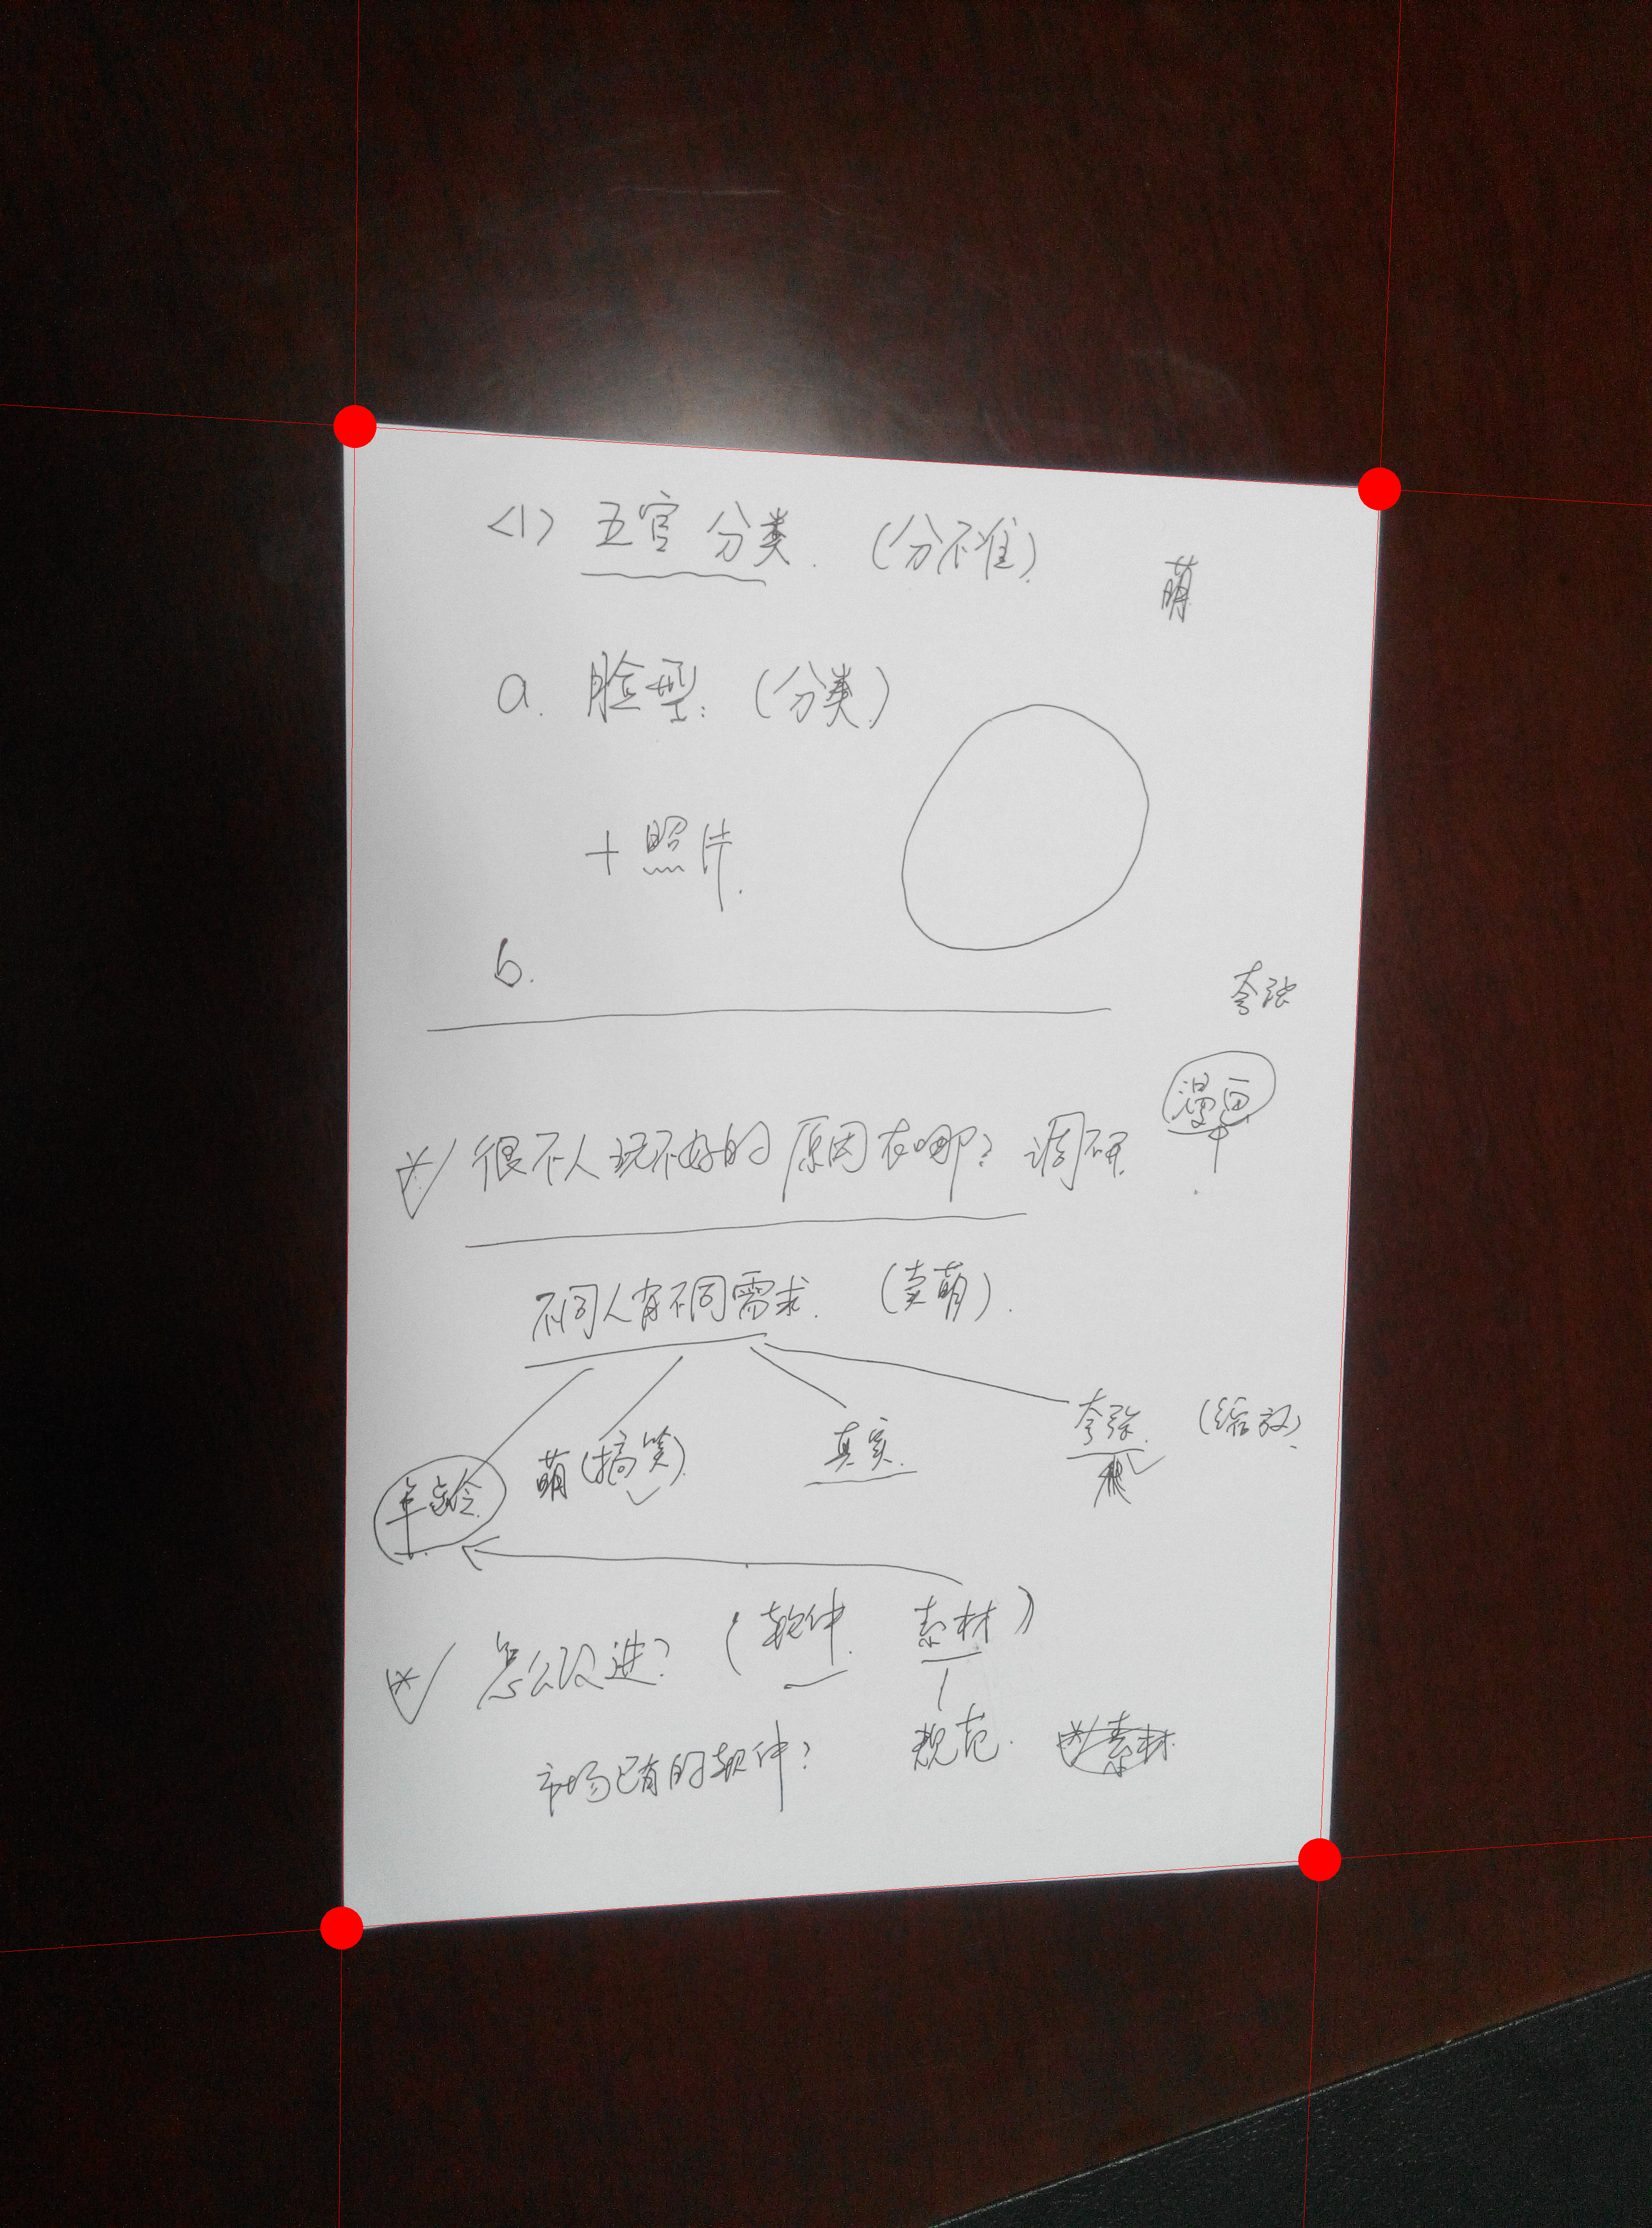 <1> 五官分类. (分不准)
萌
a. 脸型: (分类)
+ 照片.
b.
夸张
漫画
很不人玩不好的原因在哪? 调研
不同人有不同需求. (卖萌).
年龄 萌(搞笑) 真实. 夸张. (缩放)
怎么改进? (软件. 素材)
市场已有的软件? 规范. 素材.